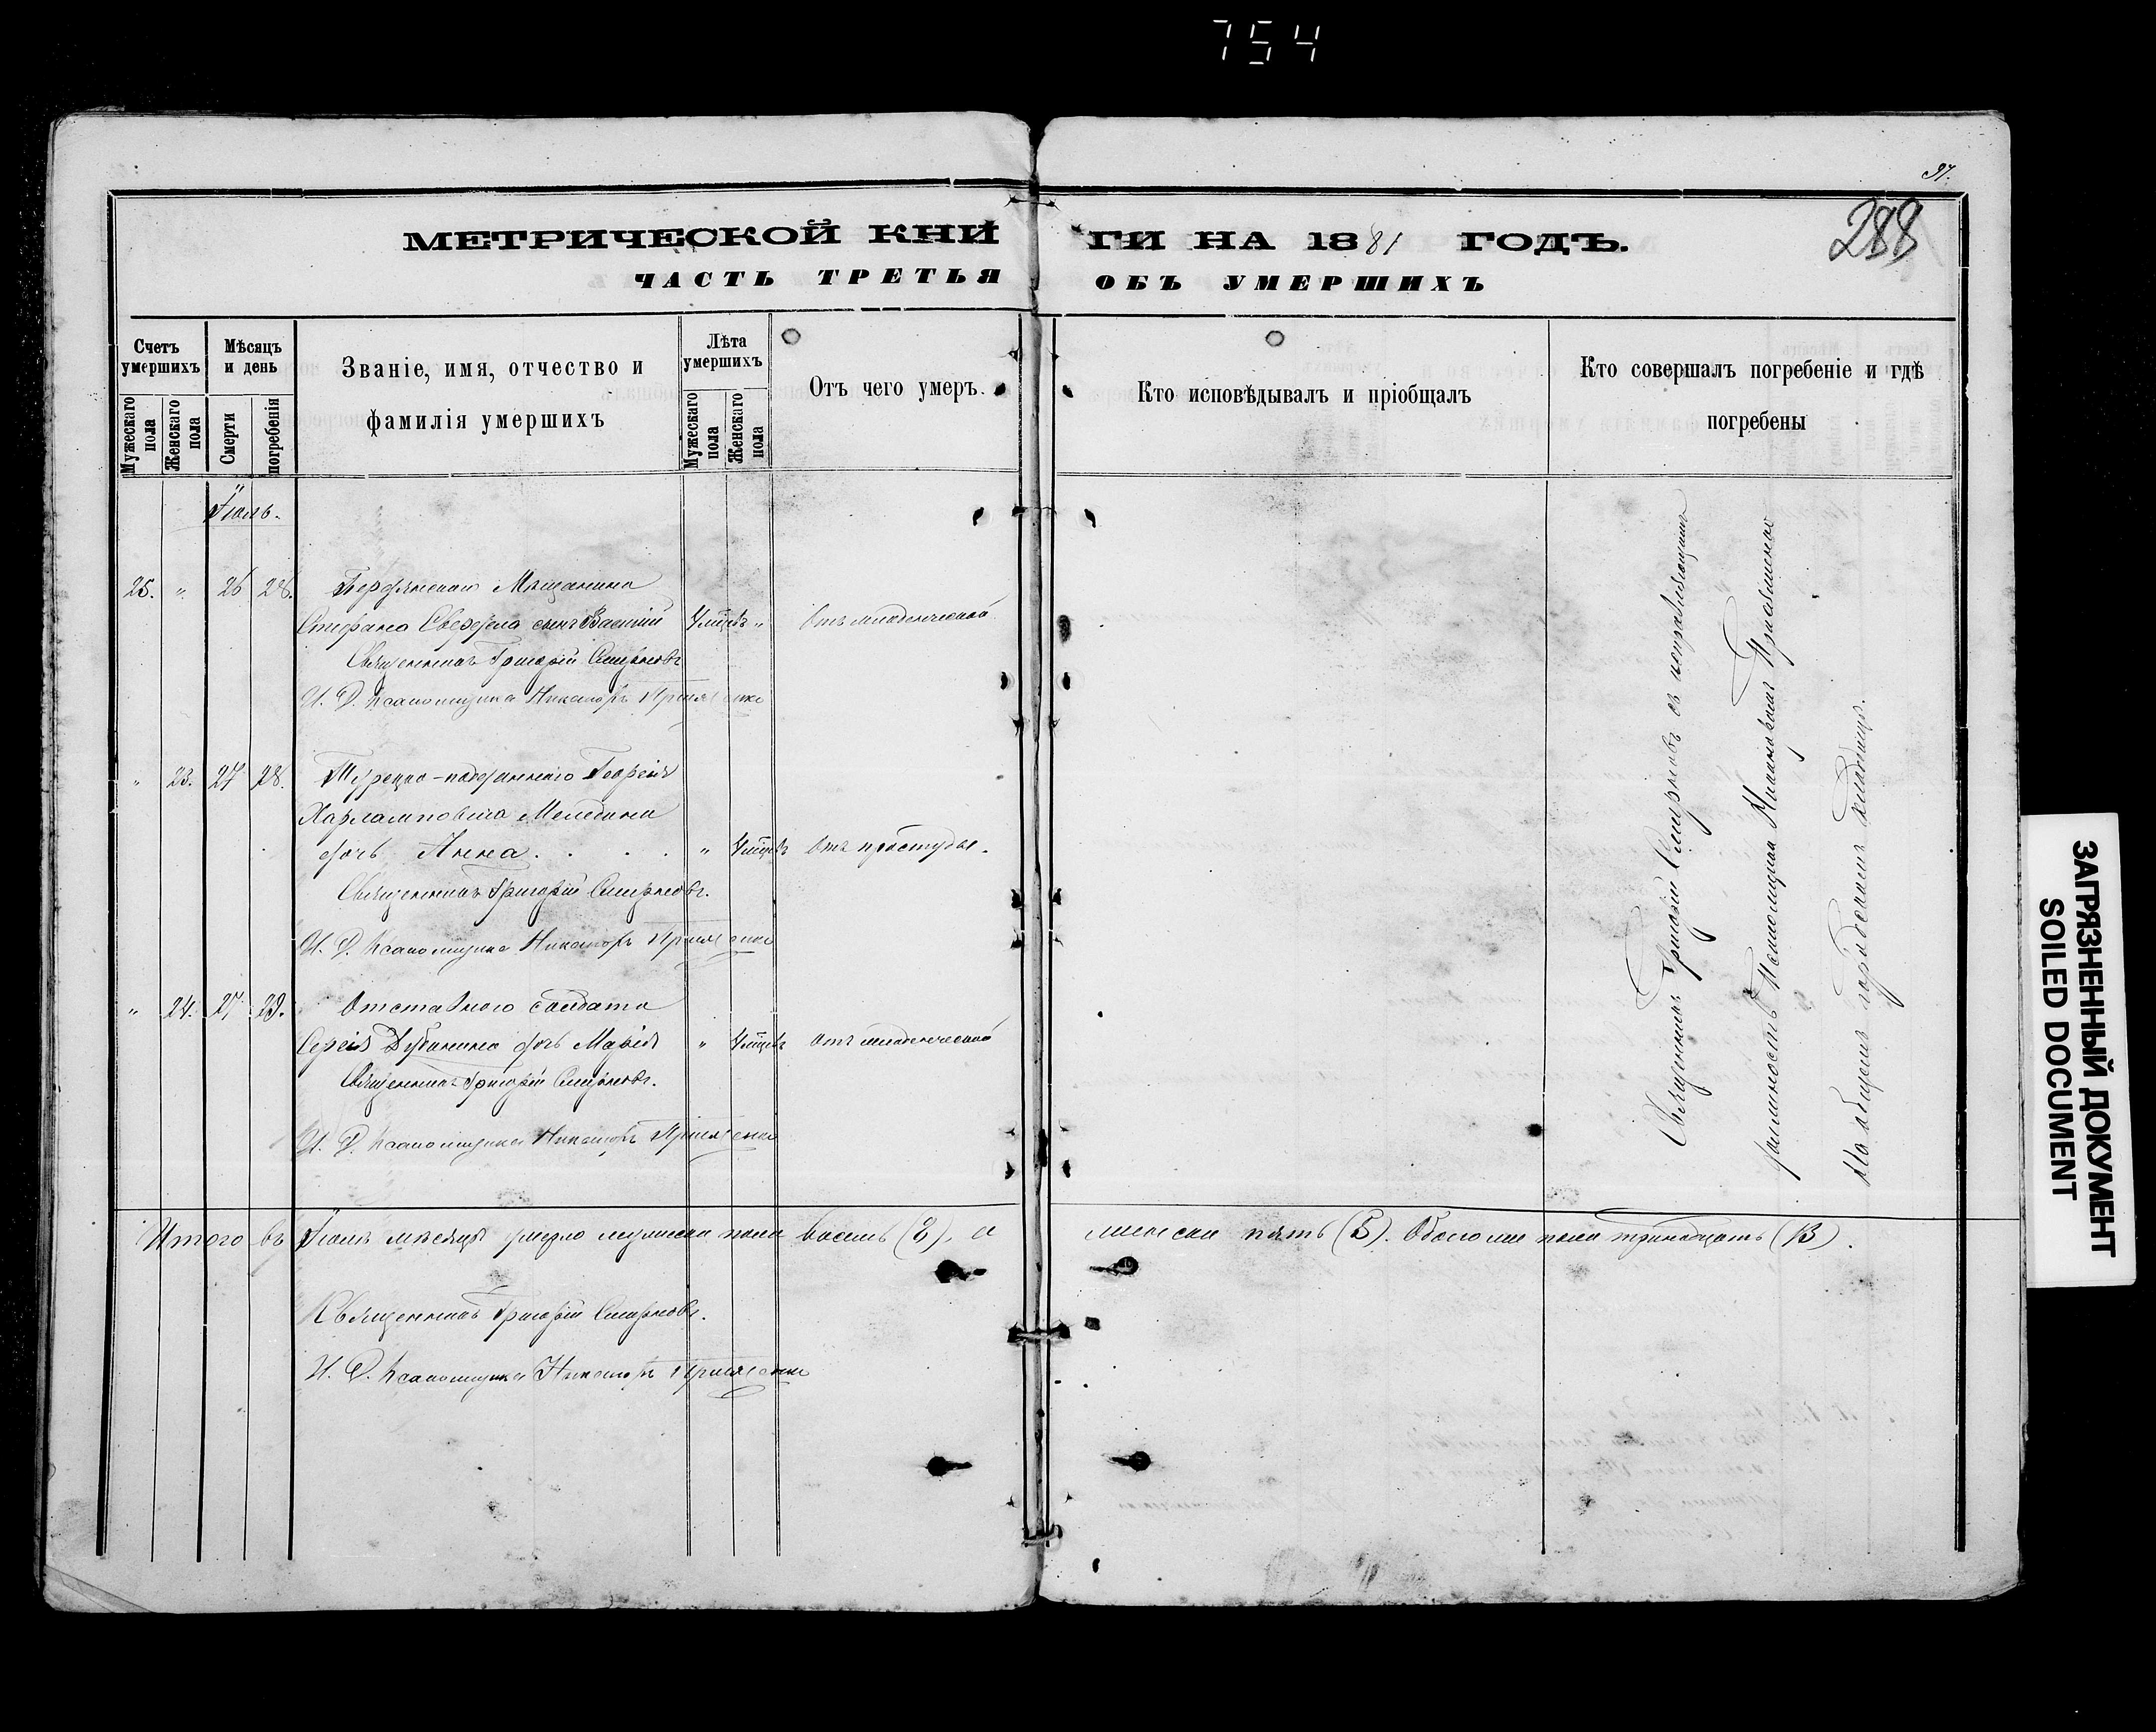 754
97.
288
МЕТРИЧЕСКОЙ КНИГИ НА 1881 ГОДЪ.
ЧАСТЬ ТРЕТЬЯ ОБЪ УМЕРШИХЪ
Счетъ умершихъ
Мужескаго пола
Женскаго пола
Мѣсяцъ и день
Смерти
погребенія
Званіе, имя, отчество и
фамилія умершихъ
Лѣта умершихъ
Мужескаго пола
Женскаго пола
Отъ чего умеръ.
Кто исповѣдывалъ и пріобщалъ
Кто совершалъ погребеніе и гдѣ
погребены
Іюль.
25. " 26 28. Бердянскаго Мѣщанина
Стефана сынъ Василій 4 мѣс. " Отъ младенческой
Священникъ Григорій Смирновъ
И. Д. Псаломщика Никаноръ
" 23. 27 28. Турецко-подданнаго Георгія
Харламповича
дочь Анна. . . . " 4 мѣс. Отъ простуды.
Священникъ Григорій Смирновъ.
И. Д. Псаломщика Никаноръ
" 24. 27. 29. Отставного солдата
Сергія Дубинина дочь Марія " 4 мѣс. Отъ младенческой
Священникъ Григорій Смирновъ.
И. Д. Псаломщика Никаноръ
Священникъ Григорій Смирновъ съ исправляющимъ
должность Псаломщика Никаноромъ
На общемъ городскомъ кладбищѣ.
Итого въ Іюлѣ мѣсяцѣ умерло мужеска пола восемь (8), а женска пять (5). Обоего же пола тринадцать (13).
Священникъ Григорій Смирновъ.
И. Д. Псаломщика Никаноръ
ЗАГРЯЗНЕННЫЙ ДОКУМЕНТ
SOILED DOCUMENT